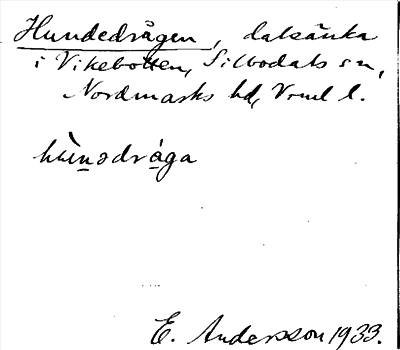 Hundedrågen, dalsänka
i Vikebotten, Silbodals sn,
Nordmarks hd, Vrml l.
hùnədråga
E. Andersson 1933.